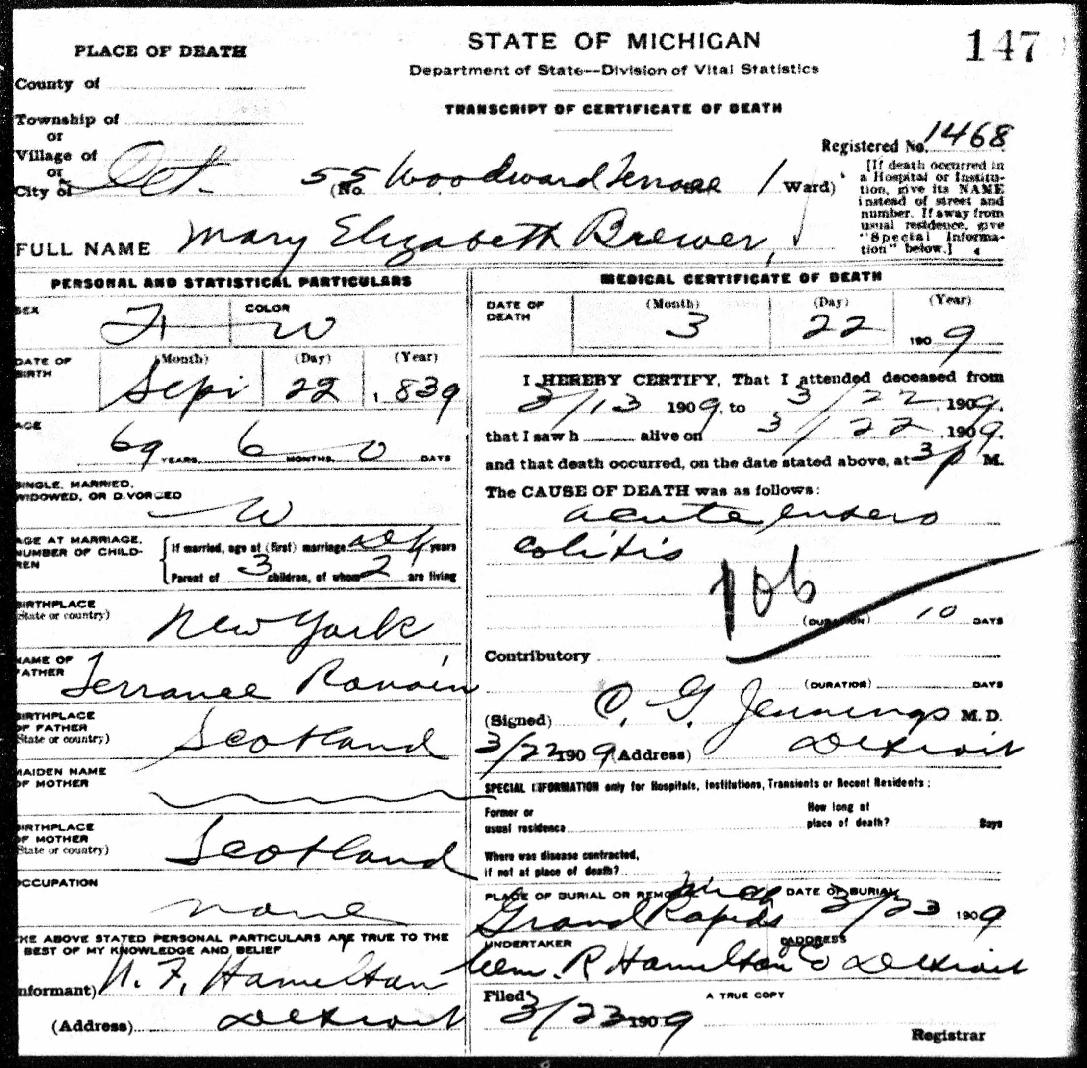 147
STATE OF MICHIGAN
Department of State—Division of Vital Statistics
TRANSCRIPT OF CERTIFICATE OF DEATH
PLACE OF DEATH
County of
Township of
or
Village of
or
City of Det. (No. 55 Woodward Terrace 1 Ward)
Registered No. 1468
[If death occurred in
a Hospital or Institu-
tion, give its NAME
instead of street and
number. If away from
usual residence, give
"Special Informa-
tion" below.]
FULL NAME Mary Elizabeth Brewer
PERSONAL AND STATISTICAL PARTICULARS
SEX F COLOR W
DATE OF BIRTH (Month) (Day) (Year)
Sept 22 1839
AGE
69 YEARS, 6 MONTHS, 0 DAYS
SINGLE, MARRIED,
WIDOWED, OR DIVORCED
W
AGE AT MARRIAGE,
NUMBER OF CHILD-
REN
If married, age at (first) marriage years
Parent of 3 children, of whom 2 are living
BIRTHPLACE
(State or country)
New York
NAME OF
FATHER
Terrance
BIRTHPLACE
OF FATHER
(State or country)
Scotland
MAIDEN NAME
OF MOTHER
BIRTHPLACE
OF MOTHER
(State or country)
Scotland
OCCUPATION
none
THE ABOVE STATED PERSONAL PARTICULARS ARE TRUE TO THE
BEST OF MY KNOWLEDGE AND BELIEF
(Informant) N. F. Hamilton
(Address) Detroit
MEDICAL CERTIFICATE OF DEATH
DATE OF DEATH (Month) (Day) (Year)
3 22 1909
I HEREBY CERTIFY, That I attended deceased from
3/13 1909, to 3/22, 1909.
that I saw h alive on 3/22, 1909.
and that death occurred, on the date stated above, at 3 P M.
The CAUSE OF DEATH was as follows:
acute entero
colitis
106
(DURATION) 10 DAYS
Contributory
(DURATION) DAYS
(Signed) C. G. Jennings M.D.
3/22 1909 (Address) Detroit
SPECIAL INFORMATION only for Hospitals, Institutions, Transients or Recent Residents:
Former or
usual residence
How long at
place of death? Days
Where was disease contracted,
if not at place of death?
PLACE OF BURIAL OR REMOVAL DATE OF BURIAL
Grand Rapids Mich 3/23 1909
UNDERTAKER ADDRESS
Wm. R Hamilton Co Detroit
Filed 3/23 1909 A TRUE COPY
Registrar